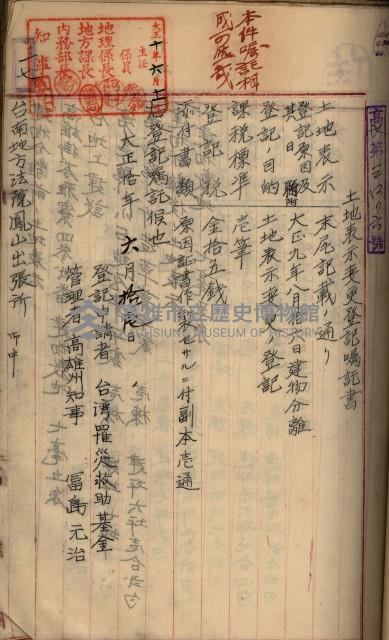 土地表示変更登記嘱託書
土地表示　末尾記載ノ通リ
登記原因及其ノ日附　大正九年八月拾八日建物分離
登記ノ目的　土地表示変更ノ登記
課税標準　壱筆
登記税　金拾五銭
添付書類　原因証書作成セサルニ付副本壱通
右登記嘱託候也
大正拾年六月拾　日
登記申請者　台湾罹災救助基金
管理者　高雄州知事　冨島元治
台南地方法院鳳山出張所　御中
大正十年六月十
主任
係員
地理係長
地方課長
内務部長
知事
高雄市立歷史博物館
KAOHSIUNG MUSEUM OF HISTORY